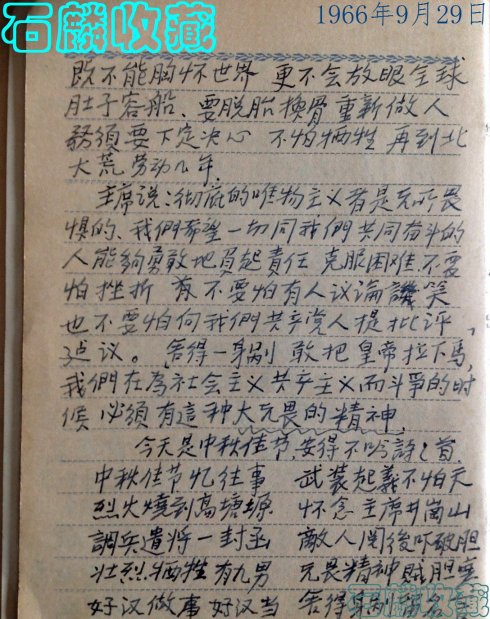 石麟收藏
1966年9月29日
既不能胸怀世界 更不会放眼全球
肚子容船、要脱胎换骨重新做人
务須要下定决心 不怕牺牲 再到北
大荒劳动几年.
主席说:彻底的唯物主义者是无所畏
惧的、我們希望一切同我們共同奋斗的
人能夠勇敢地負起責任 克服困难.不要
怕挫折 不要怕有人议論譏笑
也不要怕向我們共产党人提批评,
建议。舍得一身剐 敢把皇帝拉下馬,
我們在為社会主义共产主义而斗爭的时
候 必須有這种大无畏的精神.
今天是中秋佳节,安得不吟詩一首
中秋佳节忆往事 武装起義不怕天
烈火燒到高塘塬 怀念主席井崗山
調兵遣将一封函 敵人閱後吓破胆
壮烈牺牲有九男 无畏精神賊胆寒
好汉做事好汉当 舍得身剐